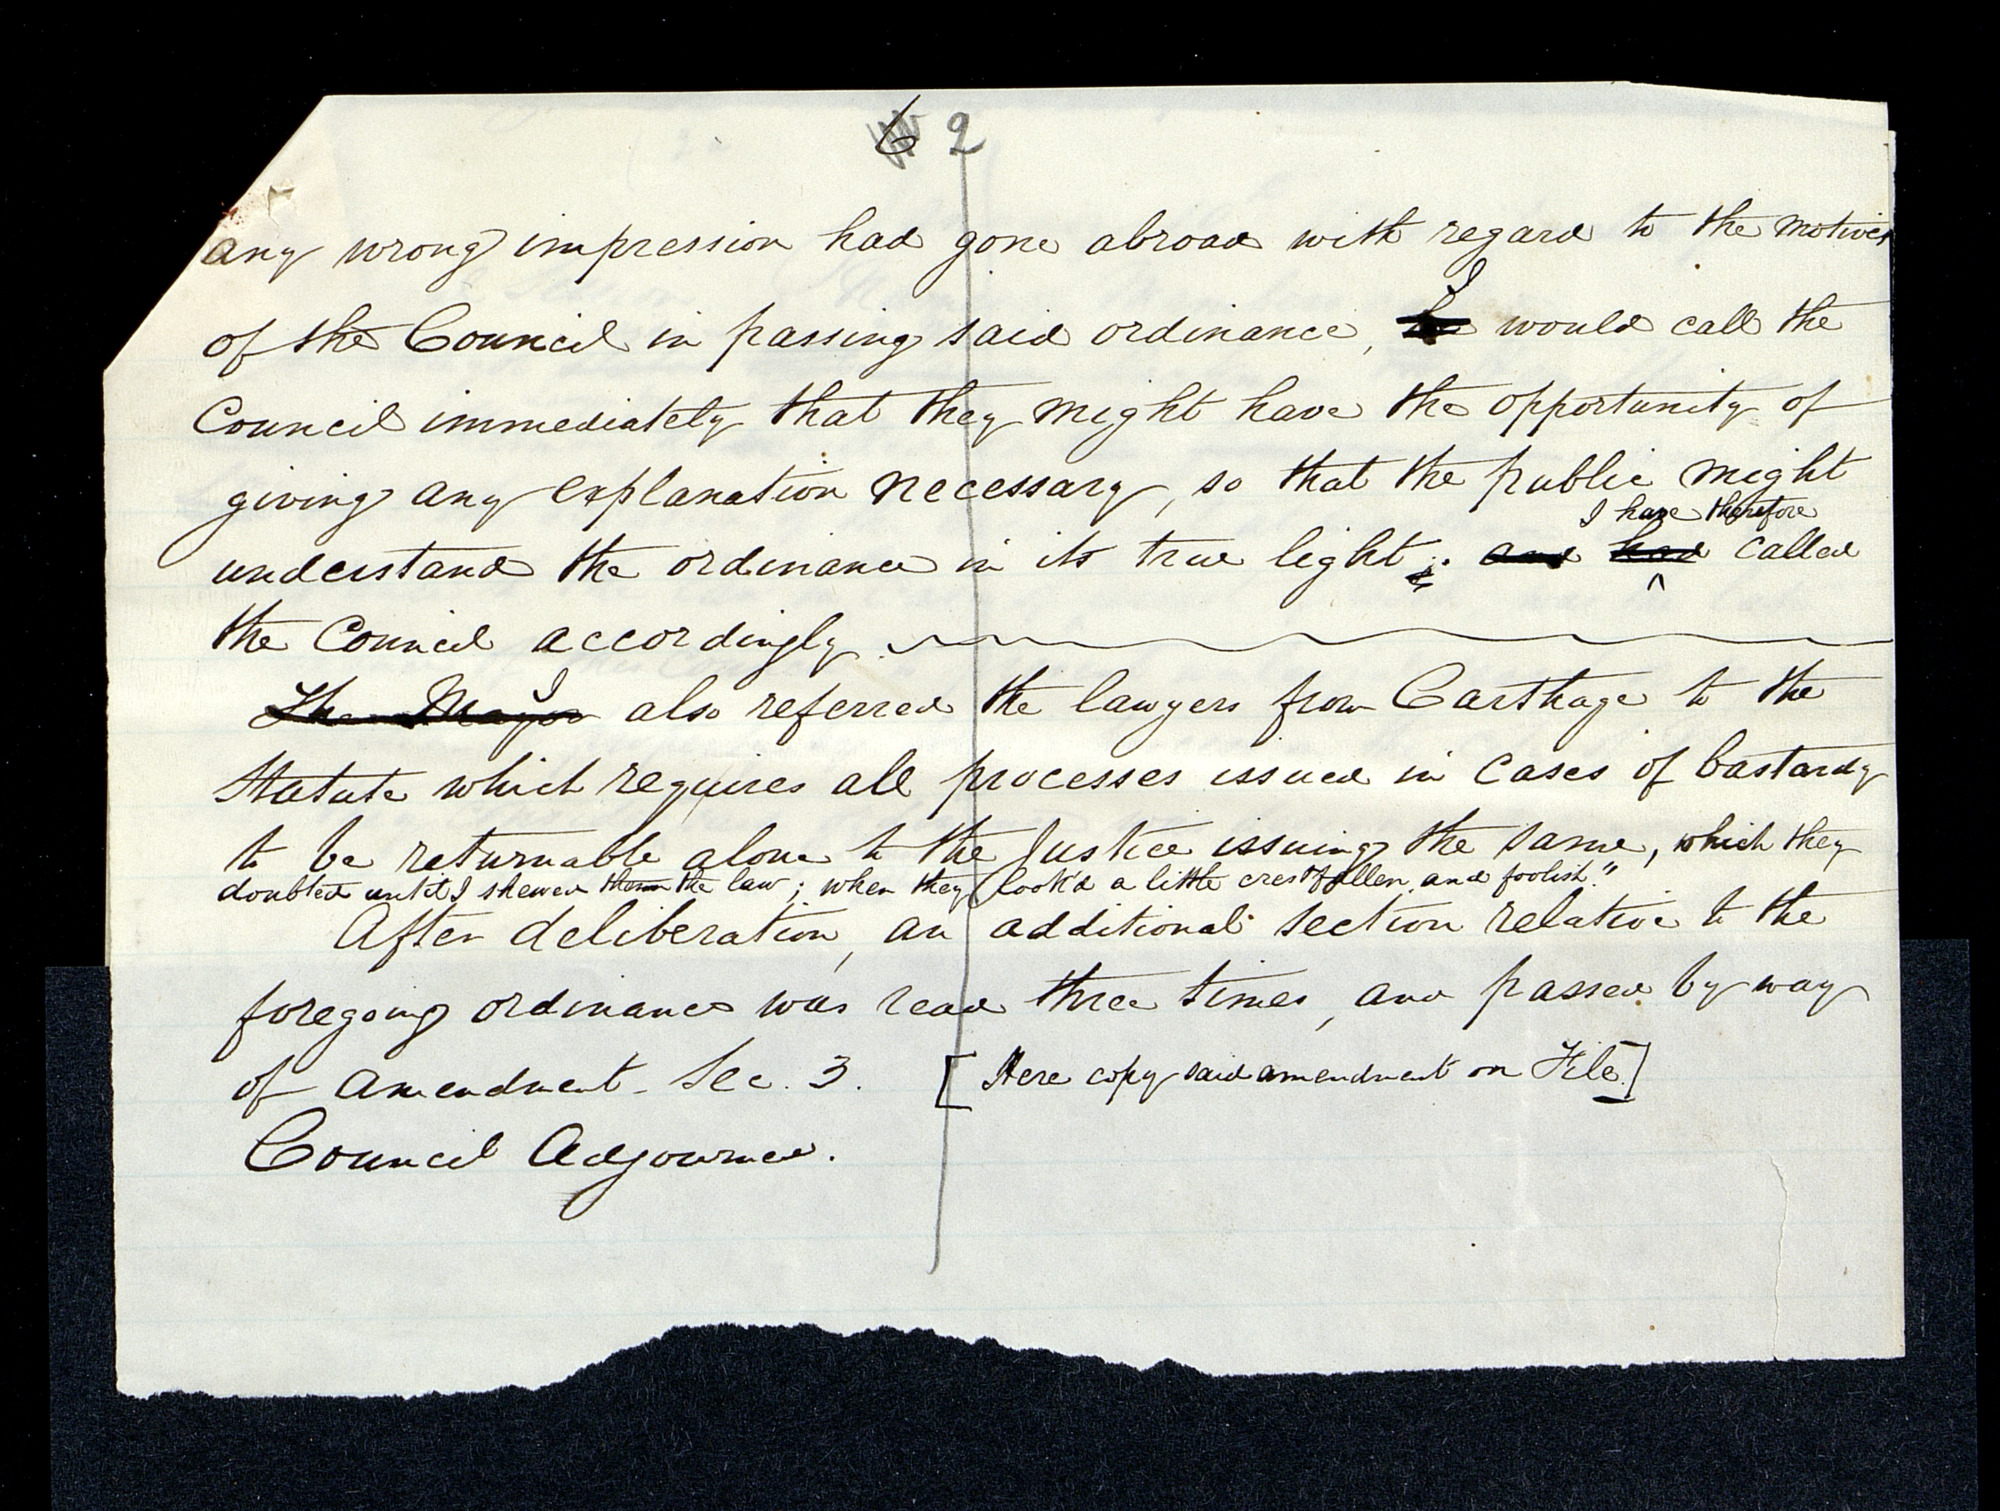 6 2
any wrong impression had gone abroad with regard to the motives
I
of the Council in passing said ordinance, he would call the
Council immediately that they might have the opportunity of
giving any explanation necessary, so that the public might
I have therefore
understand the ordinance in its true light; and had called
the Council accordingly.
I
The Mayor also referred the lawyers from Carthage to the
Statute which requires all processes issued in cases of bastardy
to be returnable alone to the Justice issuing the same, which they
doubted until I shewed them the law; when they look'd a little crestfallen and foolish."
After deliberation, an additional section relative to the
foregoing ordinance was read three times, and passed by way
of amendment - Sec. 3. [Here copy said amendment on File.]
Council Adjourned.